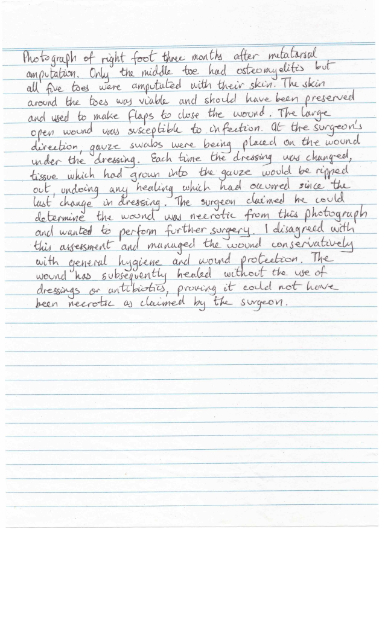 Photograph of right foot three months after metatarsal
amputation. Only the middle toe had osteomyelitis but
all five toes were amputated with their skin. The skin
around the toes was viable and should have been preserved
and used to make flaps to close the wound. The large
open wound was susceptible to infection. At the surgeon's
direction, gauze swabs were being placed on the wound
under the dressing. Each time the dressing was changed,
tissue which had grown into the gauze would be ripped
out, undoing any healing which had occurred since the
last change in dressing. The surgeon claimed he could
determine the wound was necrotic from this photograph
and wanted to perform further surgery. I disagreed with
this assessment and managed the wound conservatively
with general hygiene and wound protection. The
wound has subsequently healed without the use of
dressings or antibiotics, proving it could not have
been necrotic as claimed by the surgeon.